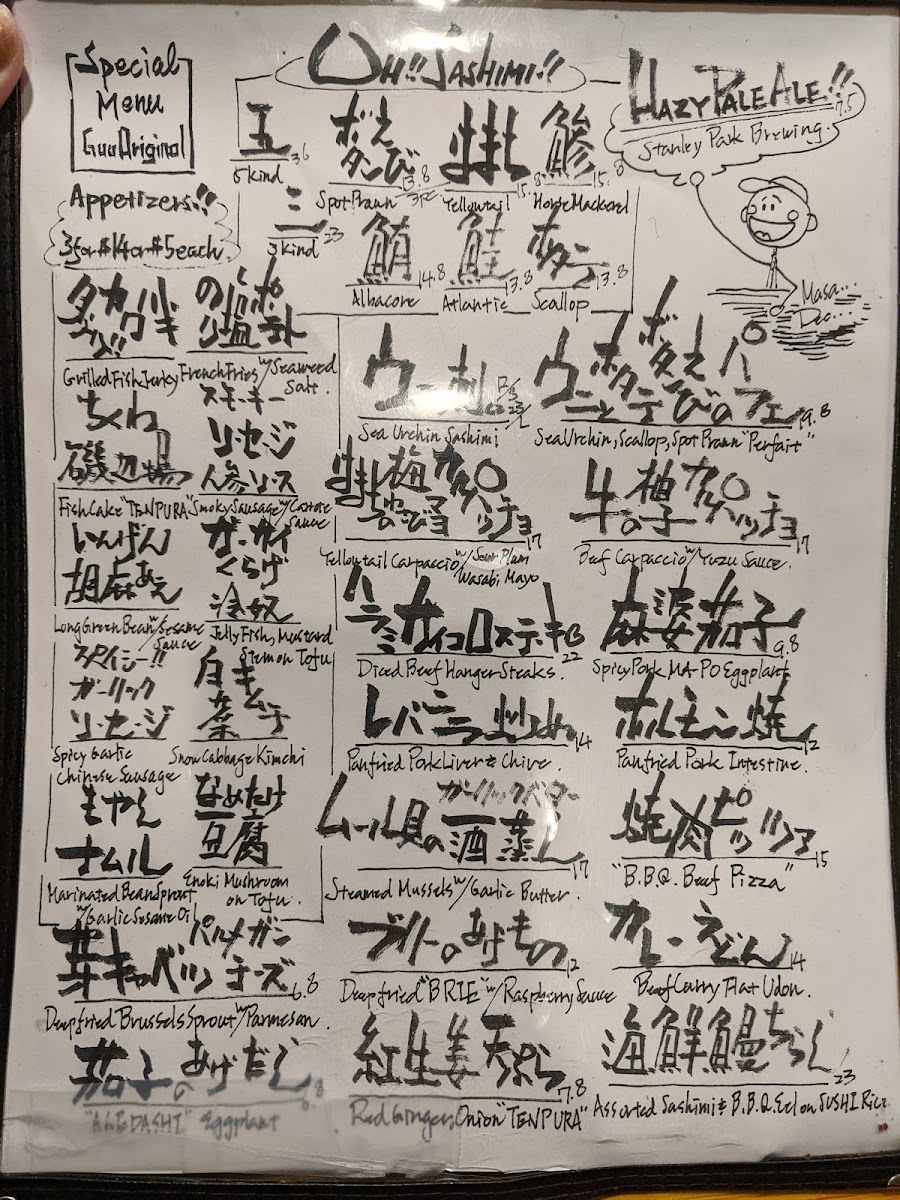 Special
Menu
Guu Original
Appetizers!!
3 for $14 or $5 each
タカハギ
グリル!!
Grilled Fish Jerky
のり塩ポテト
French Fries w/ Seaweed
Salt.
ちくわ
磯辺揚
Fish Cake "TENPURA"
スモーキー
ソーセージ
人参ソース
Smoky Sausage w/ Carrot
Sauce
いんげん
胡麻あえ
Long Green Bean w/ Sesame
Sauce
ザーサイ
くらげ
冷奴
Jelly Fish, Mustard
Stem on Tofu
スパイシー!!
ガーリック
ソーセージ
Spicy Garlic
Chinese Sausage
白キムチ
菜
Snow Cabbage Kimchi
もやし
ナムル
Marinated Bean Sprout
w/ Garlic Sesame Oil
なめたけ
豆腐
Enoki Mushroom
on Tofu.
芽キャベツ パルメザンチーズ
6.8
Deep fried Brussels Sprout w/ Parmesan.
茄子のあげだし
6.8
"AGEDASHI" Eggplant
OH!! SASHIMI!!
五
36
5 kind
ボタンえび
13.8
Spot Prawn 3pc
15.8
Yellowtail
鯵
15.8
Horse Mackerel
三
23
3 kind
鮪
14.8
Albacore
鮭
13.8
Atlantic
ホタテ
13.8
Scallop
HAZY PALE ALE!!
7.5
Stanley Park Brewing.
Masa...
ウニ刺し
Sea Urchin Sashimi
ウニとホタテとボタンえびのパフェ
19.8
Sea Urchin, Scallop, Spot Prawn "Perfait"
梅わさびマヨ カルパッチョ
17
Yellowtail Carpaccio w/ Sour Plum
Wasabi Mayo
牛の柚子カルパッチョ
17
Beef Carpaccio w/ Yuzu Sauce.
ハラミサイコロステーキ
22
Diced Beef Hanger Steaks.
麻婆茄子
9.8
Spicy Pork MA-PO Eggplant
レバニラ炒め
14
Panfried Pork Liver & Chive.
ホルモン焼
12
Panfried Pork Intestine.
ムール貝のガーリックバター酒蒸し
17
Steamed Mussels w/ Garlic Butter.
焼肉ピッツァ
15
"B.B.Q. Beef Pizza"
ブリーのあげもの
12
Deep fried "BRIE" w/ Raspberry Sauce
カレーうどん
14
Beef Curry Flat Udon.
紅生姜天ぷら
7.8
Red Ginger, Onion "TENPURA"
海鮮鰻ちらし
23
Assorted Sashimi & B.B.Q. Eel on SUSHI Rice